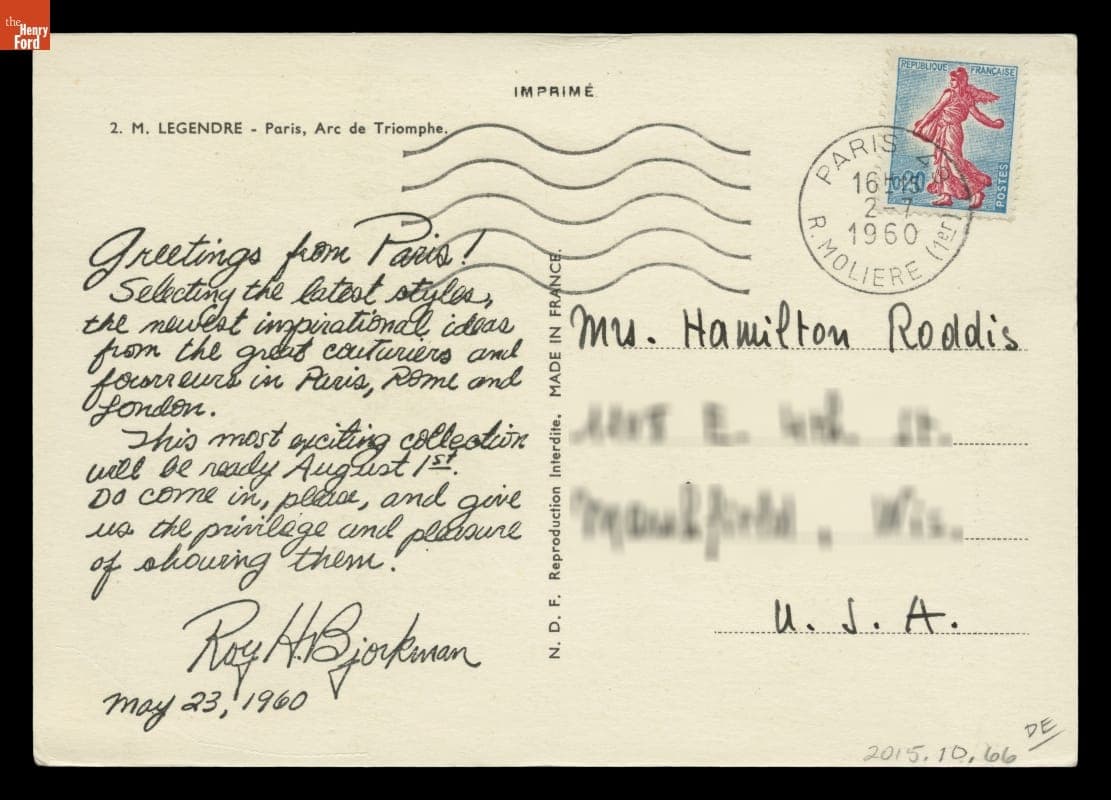 the
Henry
Ford
IMPRIMÉ
2. M. LEGENDRE - Paris, Arc de Triomphe.
REPUBLIQUE FRANÇAISE
0,20
POSTES
PARIS
16H15
2-7
1960
R. MOLIERE (1er)
Greetings from Paris!
Selecting the latest styles,
the newest inspirational ideas
from the great couturiers and
fourreurs in Paris, Rome and
London.
This most exciting collection
will be ready August 1st.
Do come in, please, and give
us the privilege and pleasure
of showing them!
Roy H. Bjorkman
May 23, 1960
N. D. F. Reproduction Interdite. MADE IN FRANCE.
Mrs. Hamilton Roddis
U. S. A.
DE
2015.10.66